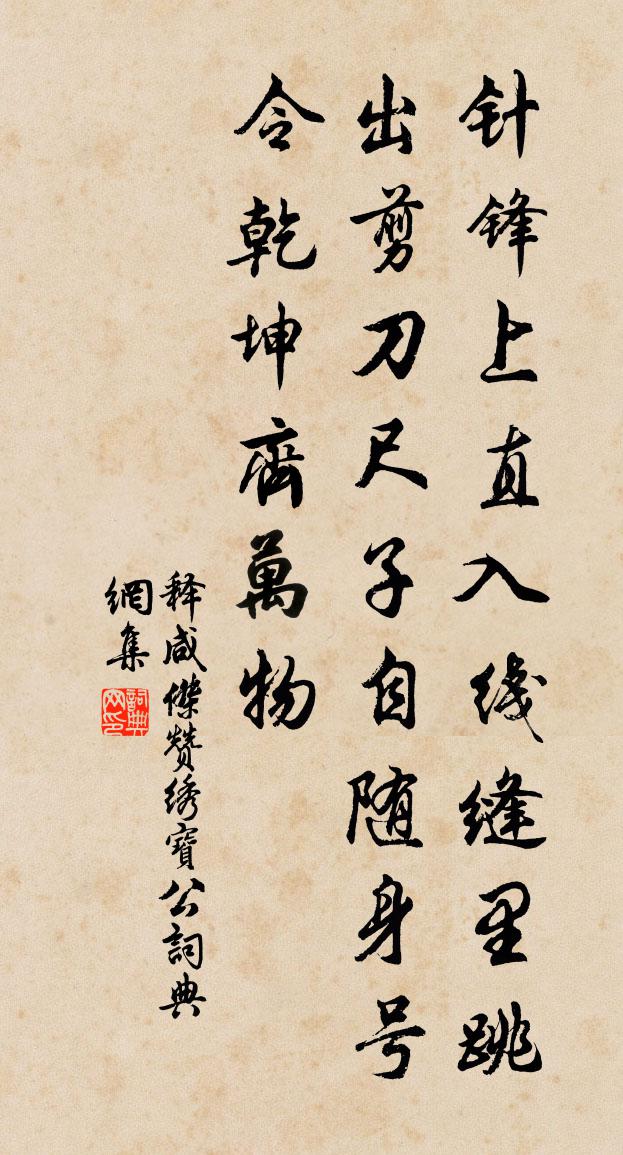 针锋上直入线缝里跳
出剪刀尺子自随身号
令乾坤齊萬物
释咸傑赞绣寶公詞典
網集
詞典网印